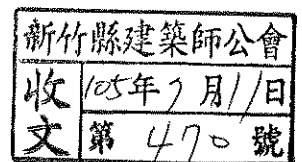 新竹縣建築師公會
收文
105年7月11日
第470號